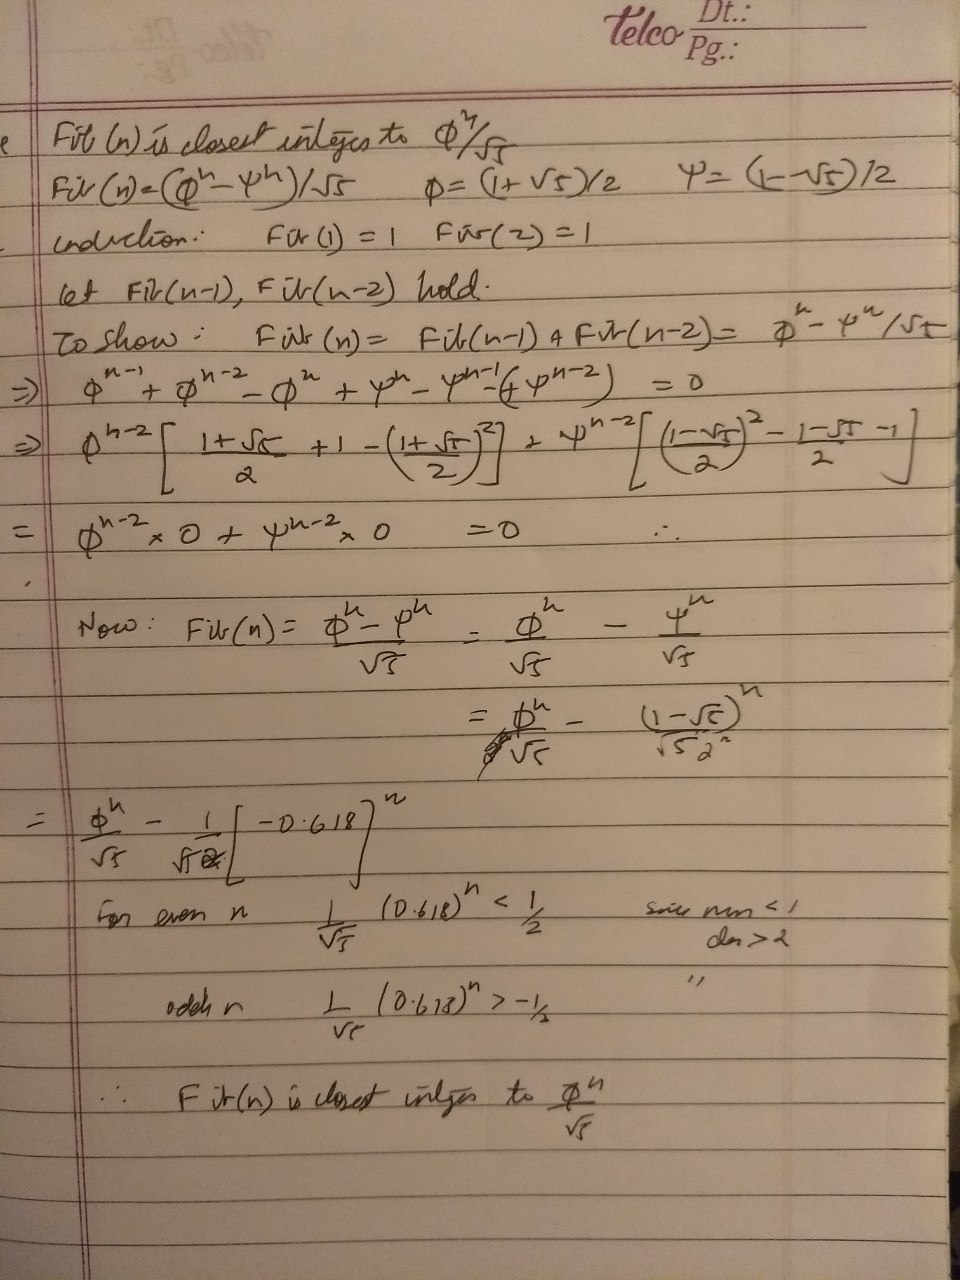 telco Dt.:
Pg.:
e Fib (n) is closest integer to ϕⁿ/√5
Fib (n) = (ϕⁿ - ψⁿ)/√5 ϕ = (1+√5)/2 ψ = (1-√5)/2
induction: Fib (1) = 1 Fib(2) = 1
let Fib(n-1), Fib(n-2) hold.
To show: Fib (n) = Fib(n-1) + Fib(n-2) = ϕⁿ - ψⁿ/√5
⇒ ϕⁿ⁻¹ + ϕⁿ⁻² - ϕⁿ + ψⁿ - ψⁿ⁻¹ (+ ψⁿ⁻²) = 0
⇒ ϕⁿ⁻² [ (1+√5)/2 + 1 - ((1+√5)/2)² ] + ψⁿ⁻² [ ((1-√5)/2)² - (1-√5)/2 - 1 ]
= ϕⁿ⁻² × 0 + ψⁿ⁻² × 0 = 0 ∴
Now: Fib(n) = (ϕⁿ - ψⁿ)/√5 = ϕⁿ/√5 - ψⁿ/√5
= ϕⁿ/√5 - (1-√5)ⁿ/√5 2ⁿ
= ϕⁿ/√5 - 1/√5 [-0.618]ⁿ
For even n 1/√5 (0.618)ⁿ < 1/2 since num < 1
den > 2
odd n 1/√5 (0.618)ⁿ > -1/2 "
∴ Fib(n) is closest integer to ϕⁿ/√5